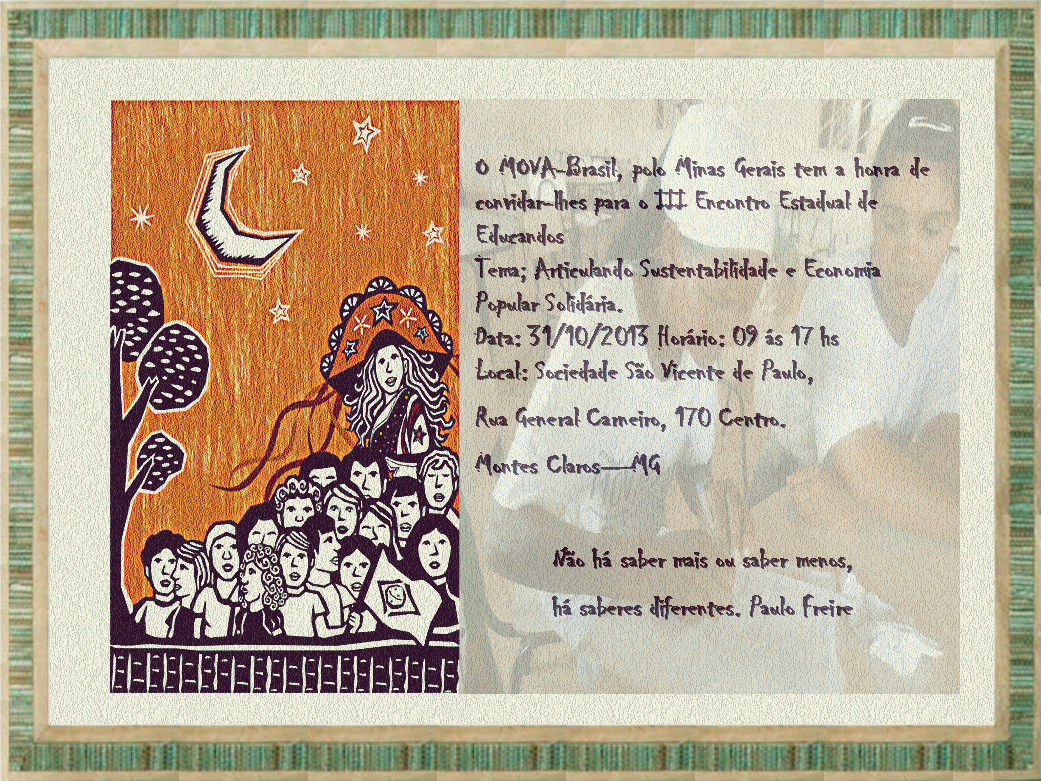 O MOVA-Brasil, polo Minas Gerais tem a honra de
convidar-lhes para o III Encontro Estadual de
Educandos
Tema; Articulando Sustentabilidade e Economia
Popular Solidária.
Data: 31/10/2013 Horário: 09 ás 17 hs
Local: Sociedade São Vicente de Paulo,
Rua General Carneiro, 170 Centro.
Montes Claros—MG
Não há saber mais ou saber menos,
há saberes diferentes. Paulo Freire